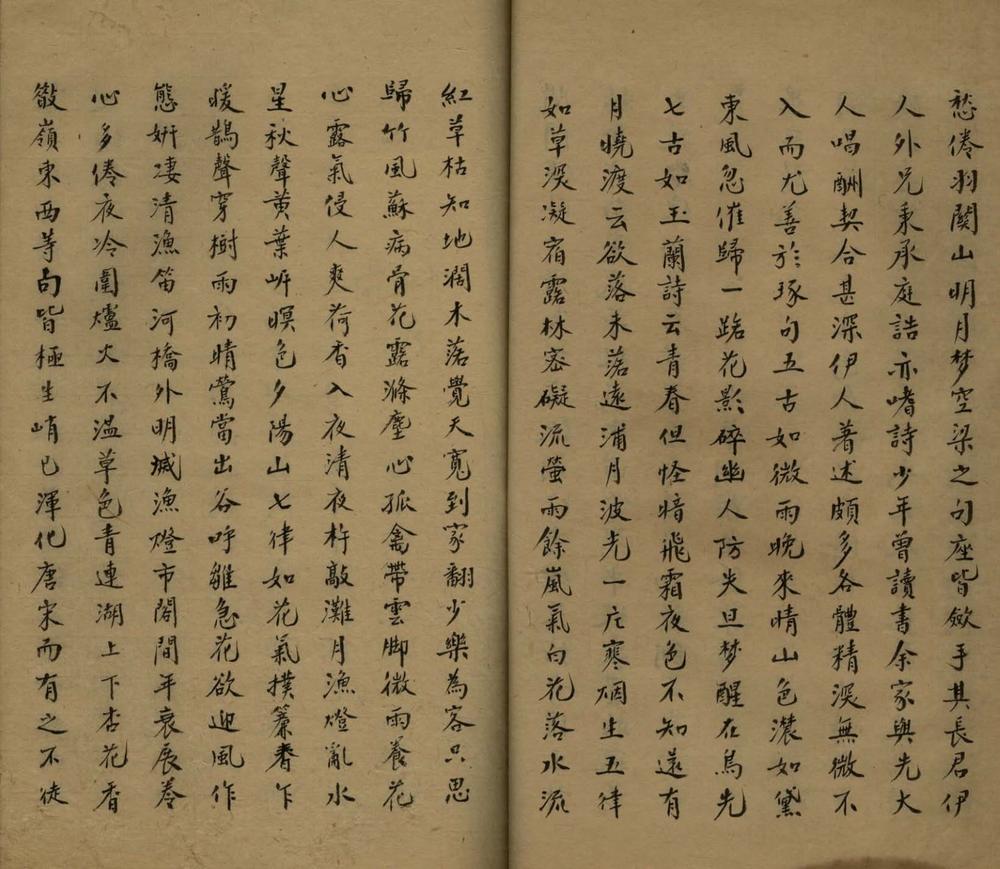 愁倦羽関山明月梦空梁之句座皆斂手其長君伊
人外兄秉承庭誥亦嗜詩少年曾讀書余家與先大
人唱酬契合甚深伊人著述頗多各體精深無微不
入而尤善於琢句五古如微雨晚來情山色濃如黛
東風忽催歸一路花影碎幽人防失旦梦醒在鳥先
七古如玉蘭詩云青春但怪暗飛霜夜色不知遠有
月曉渡云欲落未落遠浦月波光一片寒烟生五律
如草深凝宿露林密礙流螢雨餘嵐氣白花落水流
紅草枯知地濶木落覺天寬到家翻少樂為客只思
歸竹風蘇病骨花露滌塵心孤禽帶雲脚微雨養花
心露氣侵人爽荷香入夜清夜杵敲灘月漁燈亂水
星秋聲黄葉岍暝色夕陽山七律如花氣撲簾春乍
暖鵲聲穿樹雨初晴鶯當出谷呼雛急花欲迎風作
態妍凄清漁笛河橋外明滅漁燈市閣間年衰展卷
心多倦夜冷圍爐火不温草色青連湖上下杏花香
嶺東西等句皆極生峭已渾化唐宋而有之不徒